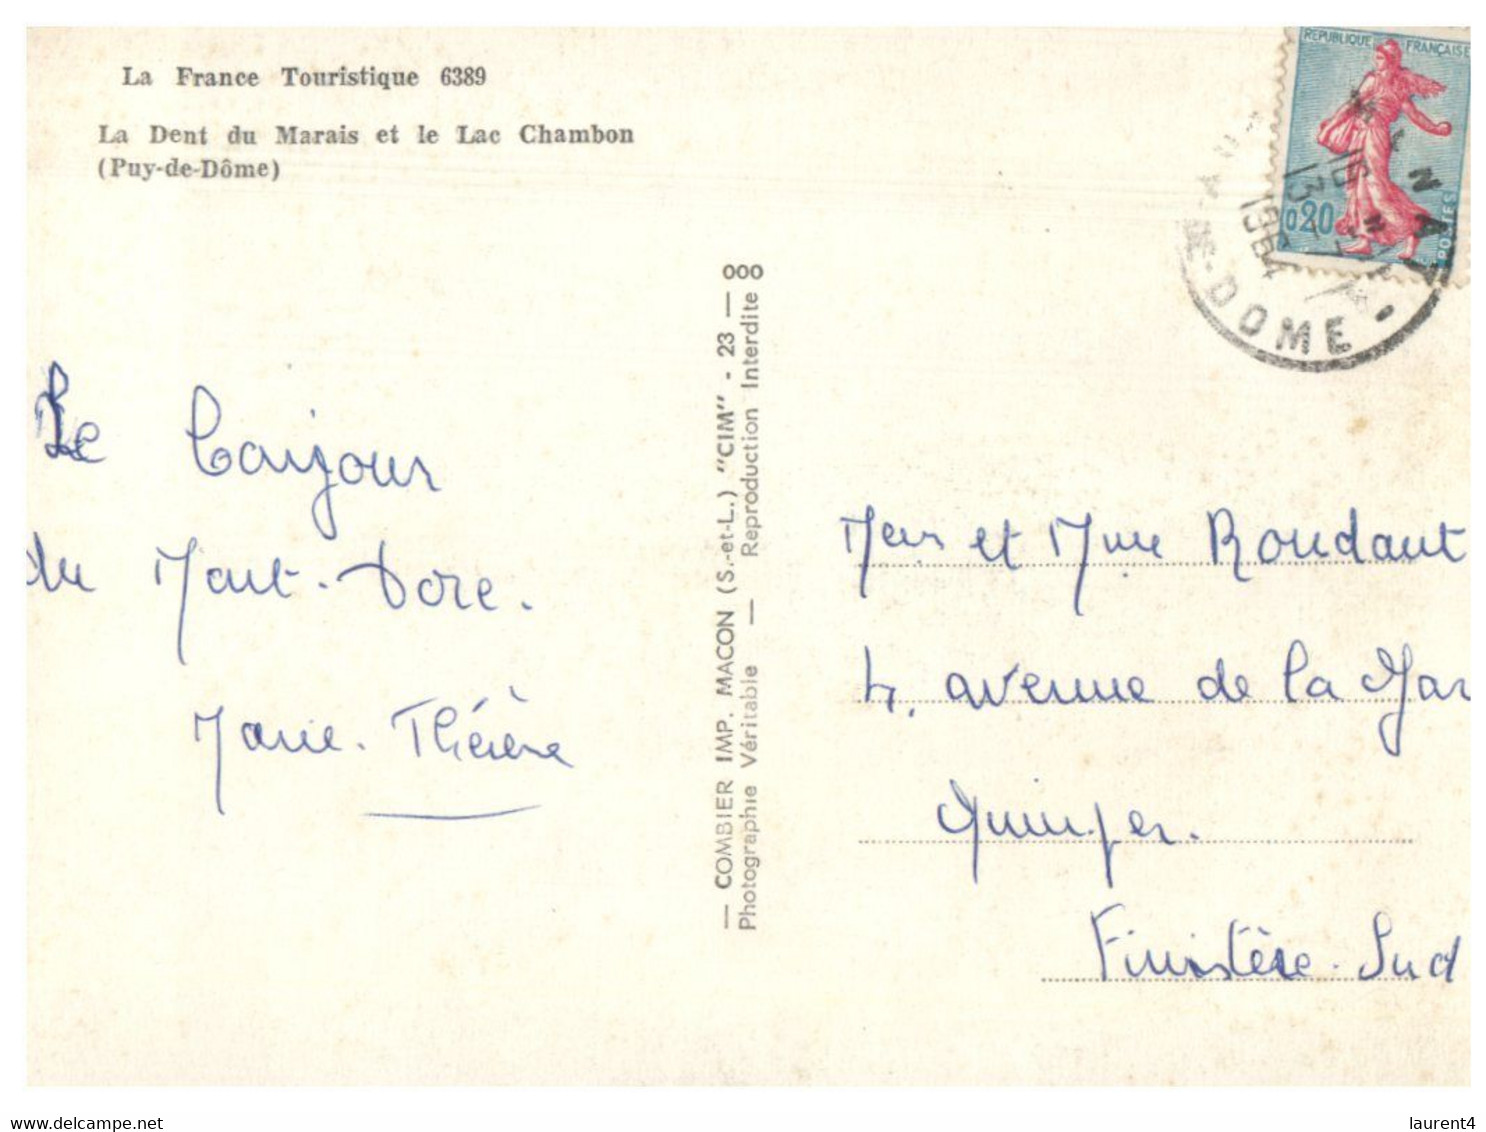 La France Touristique 6389
La Dent du Marais et le Lac Chambon
(Puy-de-Dôme)
REPUBLIQUE FRANÇAISE
0,20
POSTES
1964
DOME
Le bonjour
du Mont-Dore.
Marie-Thérèse
— COMBIER IMP. MACON (S.-et-L.) "CIM" - 23 — 000
Photographie Véritable — Reproduction Interdite
Mr et Mme Roudaut
4, avenue de la Gar
Quimper.
Finistère-Sud
www.delcampe.net
laurent4